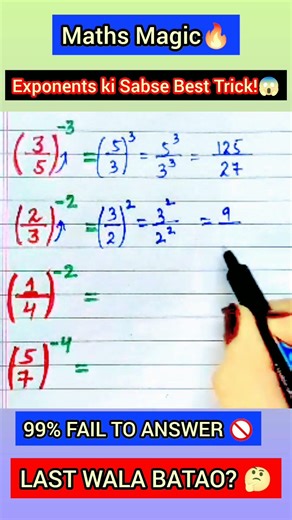 Maths Magic🔥
Exponents ki Sabse Best Trick!😱
(3/5)⁻³ = (5/3)³ = 5³/3³ = 125/27
(2/3)⁻² = (3/2)² = 3²/2² = 9/
(1/4)⁻² =
(5/7)⁻⁴ =
99% FAIL TO ANSWER 🚫
LAST WALA BATAO? 🤔